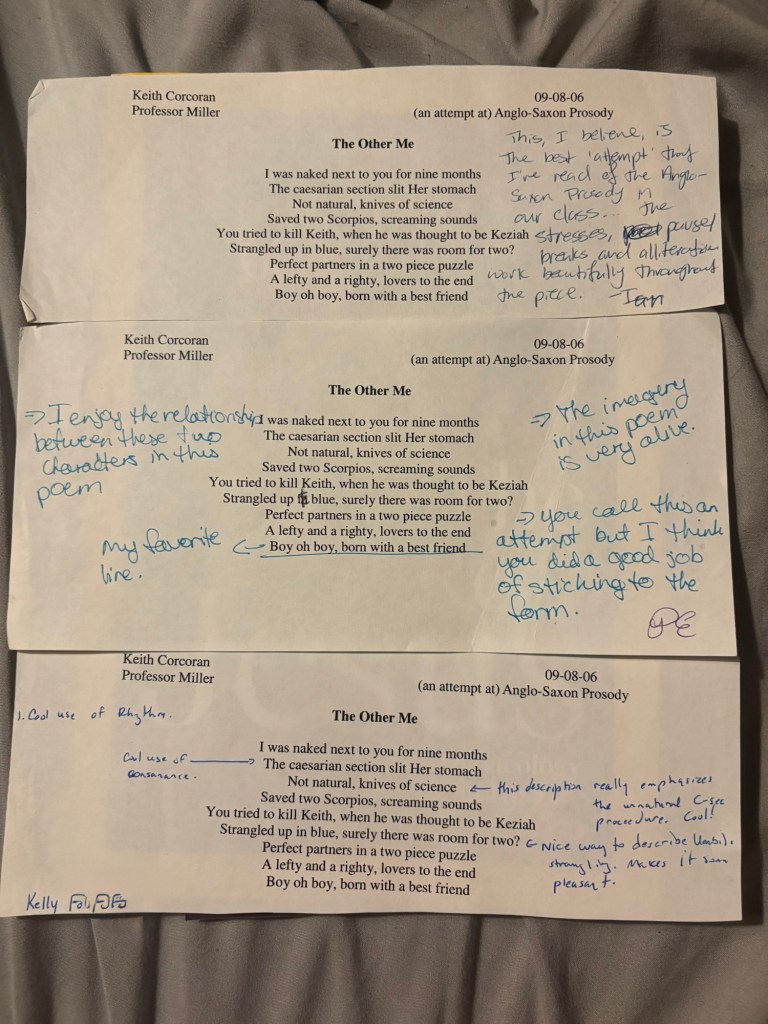 Keith Corcoran
Professor Miller
09-08-06
(an attempt at) Anglo-Saxon Prosody
The Other Me
I was naked next to you for nine months
The caesarian section slit Her stomach
Not natural, knives of science
Saved two Scorpios, screaming sounds
You tried to kill Keith, when he was thought to be Keziah
Strangled up in blue, surely there was room for two?
Perfect partners in a two piece puzzle
A lefty and a righty, lovers to the end
Boy oh boy, born with a best friend
This, I believe, is
the best 'attempt' that
I've read of the Anglo-
Saxon Prosody in
our class... the
stresses, pauses
breaks and alliteration
work beautifully throughout
the piece. -Ian
Keith Corcoran
Professor Miller
09-08-06
(an attempt at) Anglo-Saxon Prosody
The Other Me
I was naked next to you for nine months
The caesarian section slit Her stomach
Not natural, knives of science
Saved two Scorpios, screaming sounds
You tried to kill Keith, when he was thought to be Keziah
Strangled up blue, surely there was room for two?
Perfect partners in a two piece puzzle
A lefty and a righty, lovers to the end
Boy oh boy, born with a best friend
=> I enjoy the relationship
between these two
characters in this
poem
My favorite
line.
=> The imagery
in this poem
is very alive.
=> you call this an
attempt but I think
you did a good job
of sticking to the
form.
PE
Keith Corcoran
Professor Miller
09-08-06
(an attempt at) Anglo-Saxon Prosody
The Other Me
I was naked next to you for nine months
The caesarian section slit Her stomach
Not natural, knives of science
Saved two Scorpios, screaming sounds
You tried to kill Keith, when he was thought to be Keziah
Strangled up in blue, surely there was room for two?
Perfect partners in a two piece puzzle
A lefty and a righty, lovers to the end
Boy oh boy, born with a best friend
1. Cool use of Rhythm.
Cool use of
consonance.
this description really emphasizes
the unnatural C-sec
procedure. Cool!
Nice way to describe Umbil.
strangling. Makes it seem
pleasant.
Kelly